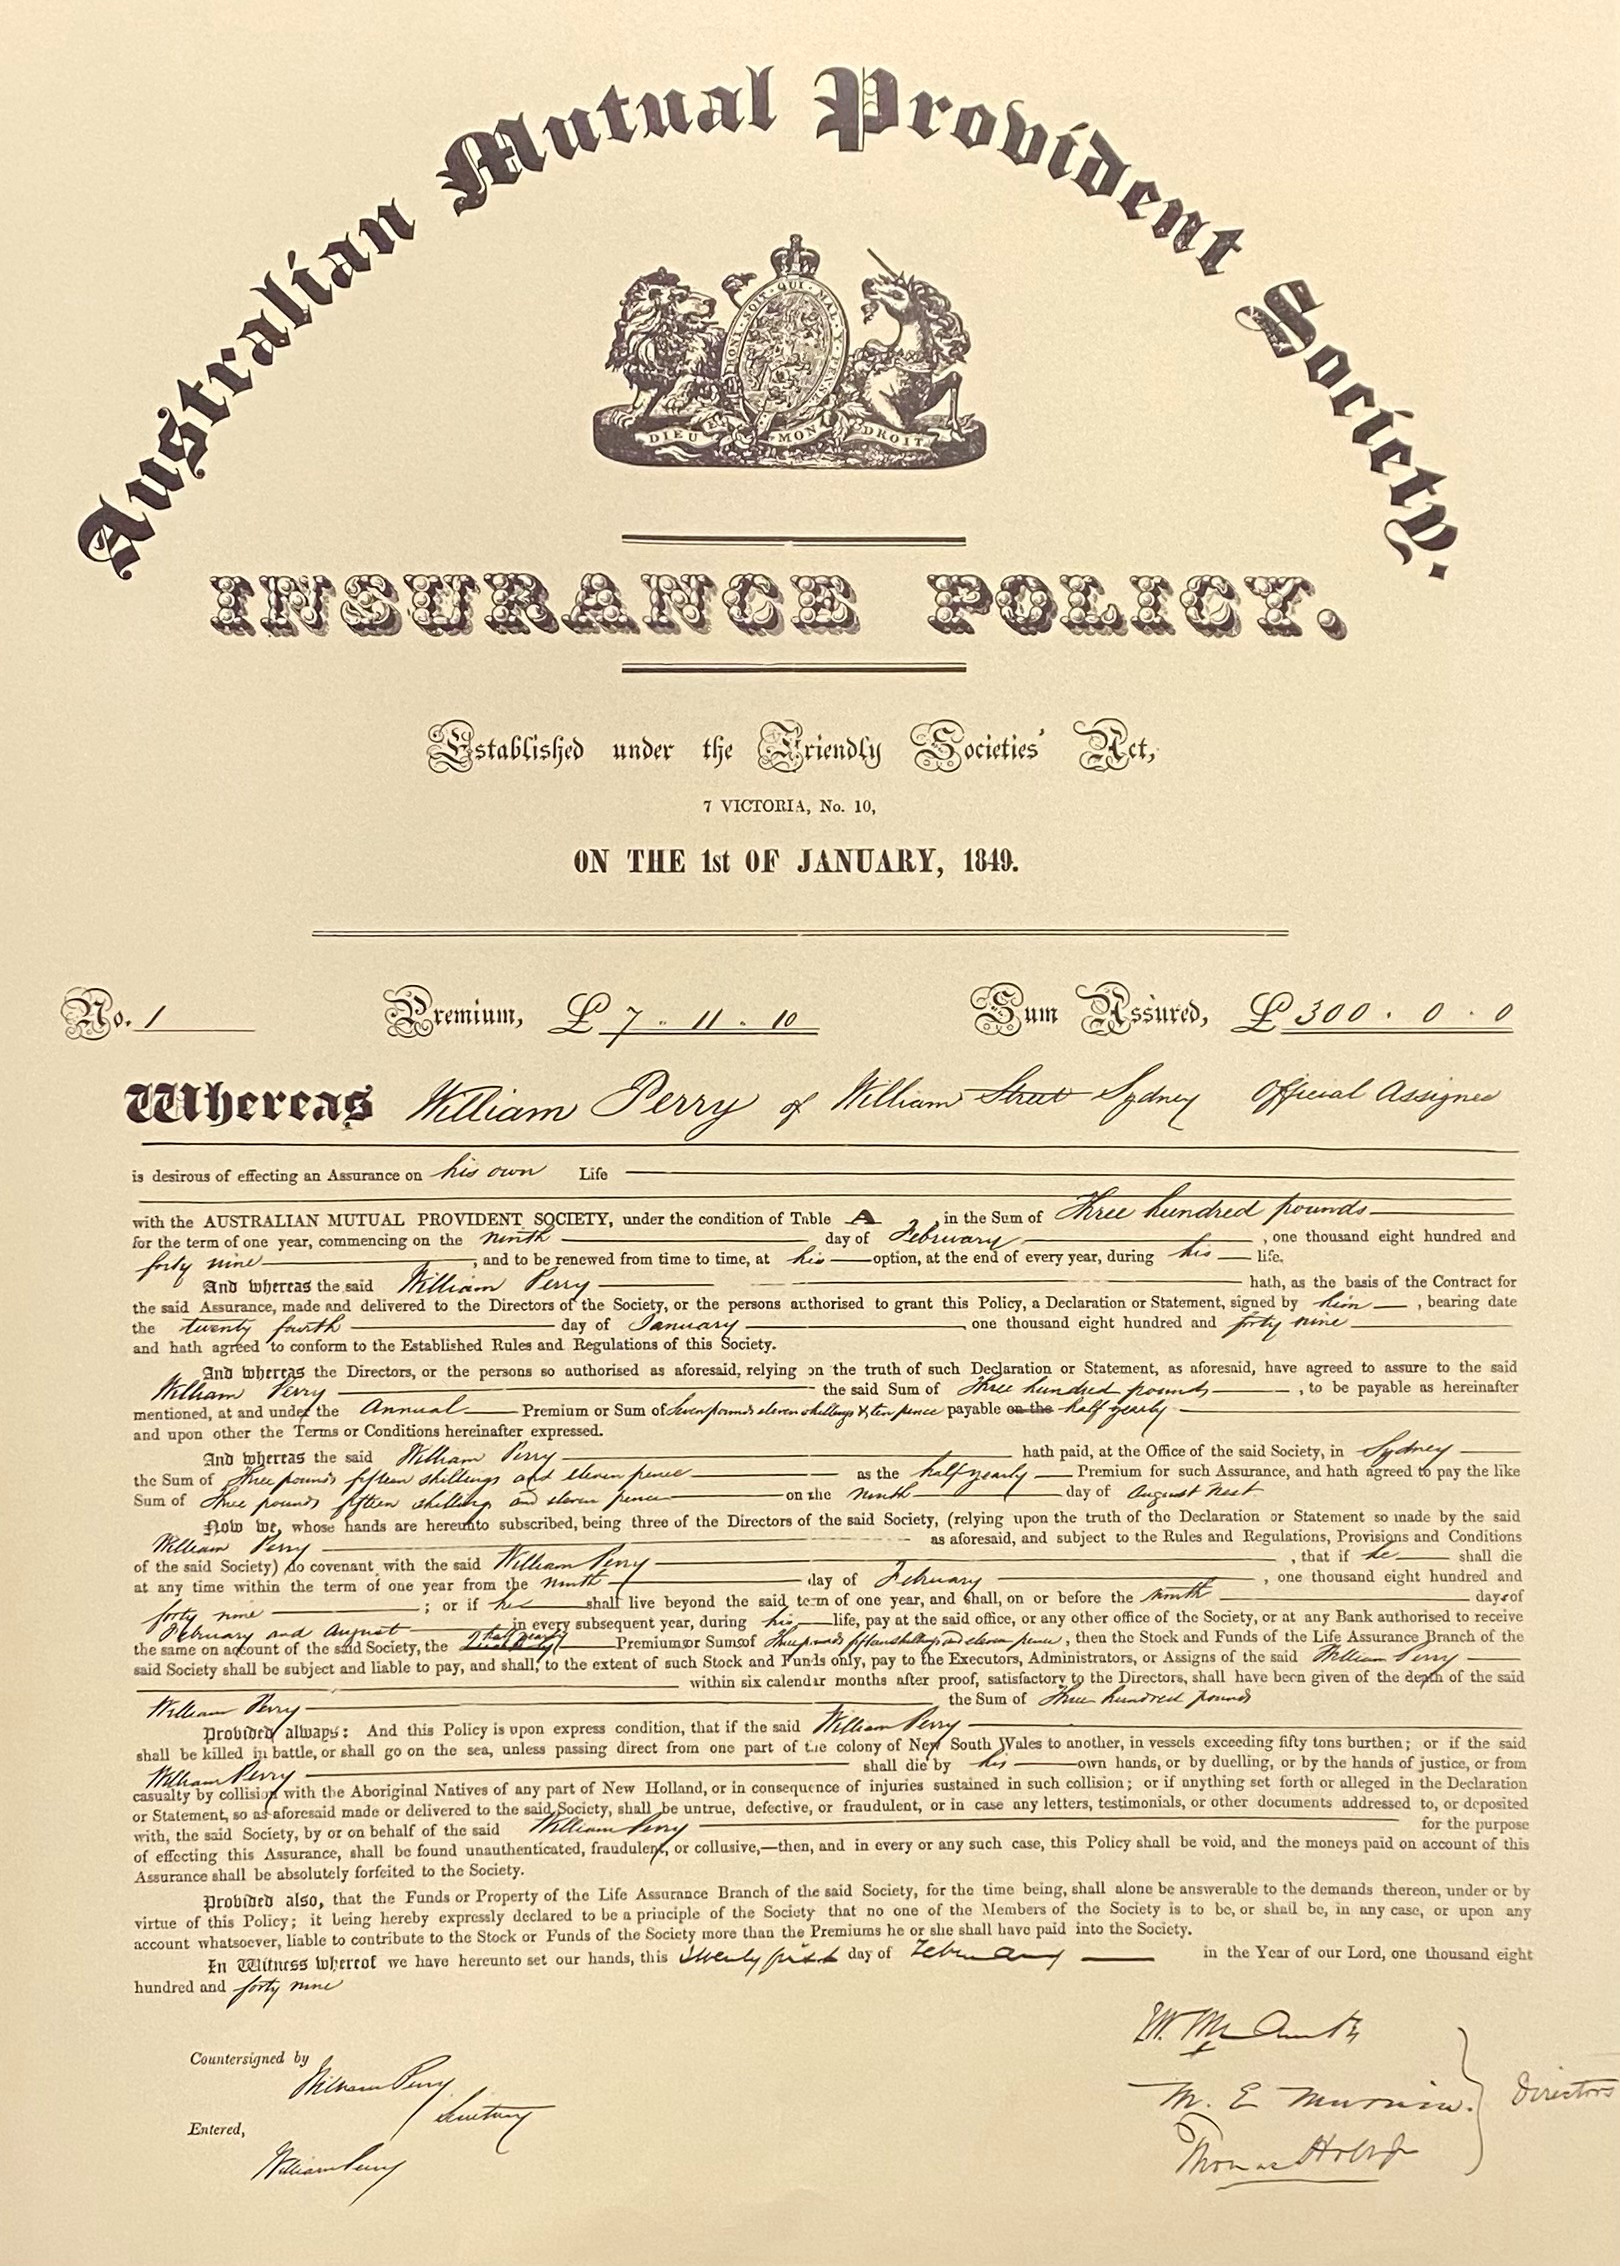 Australian Mutual Provident Society.
HONI · SOIT · QUI · MAL · Y · PENSE
DIEU ET MON DROIT
INSURANCE POLICY.
Established under the Friendly Societies' Act,
7 VICTORIA, No. 10,
ON THE 1st OF JANUARY, 1849.
No. 1 Premium, £ 7 . 11 . 10 Sum Assured, £ 300 . 0 . 0
Whereas William Perry of William Street Sydney Official Assignee
is desirous of effecting an Assurance on his own Life
with the AUSTRALIAN MUTUAL PROVIDENT SOCIETY, under the condition of Table A, in the Sum of Three hundred pounds
for the term of one year, commencing on the ninth day of February, one thousand eight hundred and
forty nine, and to be renewed from time to time, at his option, at the end of every year, during his life.
And whereas the said William Perry hath, as the basis of the Contract for
the said Assurance, made and delivered to the Directors of the Society, or the persons authorised to grant this Policy, a Declaration or Statement, signed by him, bearing date
the twenty fourth day of January, one thousand eight hundred and forty nine
and hath agreed to conform to the Established Rules and Regulations of this Society.
And whereas the Directors, or the persons so authorised as aforesaid, relying on the truth of such Declaration or Statement, as aforesaid, have agreed to assure to the said
William Perry the said Sum of Three hundred pounds, to be payable as hereinafter
mentioned, at and under the Annual Premium or Sum of Seven pounds eleven shillings & ten pence payable on the half yearly
and upon other the Terms or Conditions hereinafter expressed.
And whereas the said William Perry hath paid, at the Office of the said Society, in Sydney
the Sum of Three pounds fifteen shillings and eleven pence as the half yearly Premium for such Assurance, and hath agreed to pay the like
Sum of Three pounds fifteen shillings and eleven pence on the ninth day of August next
Now we, whose hands are hereunto subscribed, being three of the Directors of the said Society, (relying upon the truth of the Declaration or Statement so made by the said
William Perry as aforesaid, and subject to the Rules and Regulations, Provisions and Conditions
of the said Society) do covenant with the said William Perry, that if he shall die
at any time within the term of one year from the ninth day of February, one thousand eight hundred and
forty nine; or if he shall live beyond the said term of one year, and shall, on or before the ninth days of
February and August in every subsequent year, during his life, pay at the said office, or any other office of the Society, or at any Bank authorised to receive
the same on account of the said Society, the half yearly Premium or Sum of Three pounds fifteen shillings and eleven pence, then the Stock and Funds of the Life Assurance Branch of the
said Society shall be subject and liable to pay, and shall, to the extent of such Stock and Funds only, pay to the Executors, Administrators, or Assigns of the said William Perry
within six calendar months after proof, satisfactory to the Directors, shall have been given of the death of the said
William Perry the Sum of Three hundred pounds
Provided always: And this Policy is upon express condition, that if the said William Perry
shall be killed in battle, or shall go on the sea, unless passing direct from one part of the colony of New South Wales to another, in vessels exceeding fifty tons burthen; or if the said
William Perry shall die by his own hands, or by duelling, or by the hands of justice, or from
casualty by collision with the Aboriginal Natives of any part of New Holland, or in consequence of injuries sustained in such collision; or if anything set forth or alleged in the Declaration
or Statement, so as aforesaid made or delivered to the said Society, shall be untrue, defective, or fraudulent, or in case any letters, testimonials, or other documents addressed to, or deposited
with, the said Society, by or on behalf of the said William Perry for the purpose
of effecting this Assurance, shall be found unauthenticated, fraudulent, or collusive,—then, and in every or any such case, this Policy shall be void, and the moneys paid on account of this
Assurance shall be absolutely forfeited to the Society.
Provided also, that the Funds or Property of the Life Assurance Branch of the said Society, for the time being, shall alone be answerable to the demands thereon, under or by
virtue of this Policy; it being hereby expressly declared to be a principle of the Society that no one of the Members of the Society is to be, or shall be, in any case, or upon any
account whatsoever, liable to contribute to the Stock or Funds of the Society more than the Premiums he or she shall have paid into the Society.
In Witness whereof we have hereunto set our hands, this twenty first day of February in the Year of our Lord, one thousand eight
hundred and forty nine
Countersigned by
William Perry
Secretary
Entered,
William Perry
M. E. Murnin.
Thomas Holt Jr
Directors